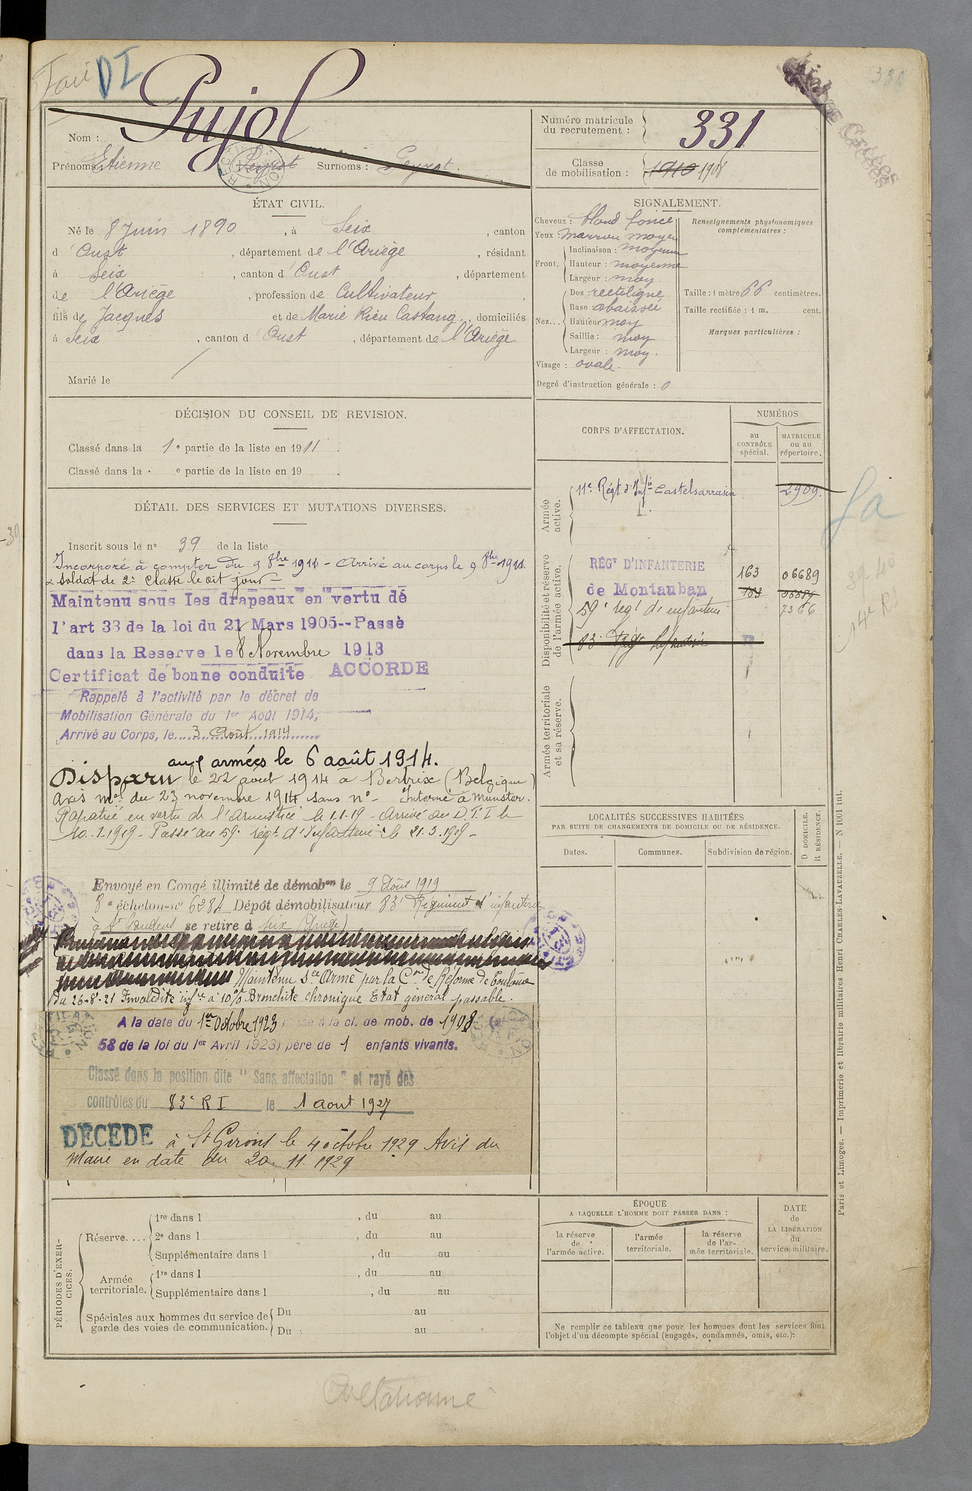 DI
Pujol
331
Nom :
Prénoms : Etienne Peyrot Surnoms : Peyrot.
Numéro matricule
du recrutement : 331
Classe
de mobilisation : 1910 1908
ÉTAT CIVIL.
Né le 8 Juin 1890, à Seix, canton
d'Oust, département de l'Ariège, résidant
à Seix, canton d'Oust, département
de l'Ariège, profession de Cultivateur,
fils de Jacques et de Marie Rieu Castaing, domiciliés
à Seix, canton d'Oust, département de l'Ariège
Marié le
SIGNALEMENT.
Cheveux : blond foncé
Yeux : marron moyen
Front. Inclinaison : moyenne
Hauteur : moyenne
Largeur : moy
Nez... Dos : rectiligne
Base abaissée
Hauteur moy
Saillie : moy
Largeur : moy.
Visage : ovale.
Degré d'instruction générale : 0
Renseignements physionomiques
complémentaires :
Taille : 1 mètre 66 centimètres.
Taille rectifiée : 1 m. cent.
Marques particulières :
DÉCISION DU CONSEIL DE REVISION.
Classé dans la 1e partie de la liste en 1911.
Classé dans la e partie de la liste en 19 .
DÉTAIL DES SERVICES ET MUTATIONS DIVERSES.
Inscrit sous le n° 39 de la liste
Incorporé à compter du 9 8bre 1911 - Arrivé au corps le 9 8bre 1911.
Soldat de 2e classe le dit jour
Maintenu sous les drapeaux en vertu de
l'art 33 de la loi du 21 Mars 1905--Passé
dans la Reserve le 8 Novembre 1913
Certificat de bonne conduite ACCORDE
Rappelé à l'activité par le décret de
Mobilisation Générale du 1er Août 1914,
Arrivé au Corps, le 3 Août 1914
aux armées le 6 août 1914.
Disparu le 22 août 1914 à Bertrix (Belgique)
avis mel du 23 novembre 1914 sans n° - Interné à Munster.
Rapatrié en vertu de l'Armistice le 1.1.19 - Arrivé au D.T.I le
10.2.1919 - Passé au 59e régt d'Infanterie le 21.3.1919 -
Envoyé en Congé illimité de démobon le 9 Août 1919
8e échelon n° 6284 Dépôt démobilisateur 83e Régiment d'infanterie
à St Gaudens se retire à Seix (Ariège)
Maintenu Sce Armé par la Con de Réforme de Toulouse
du 26-8-21 Invalidité infre à 10% Bronchite chronique Etat général passable.
A la date du 1er Octobre 1923 passé à la cl. de mob. de 1908 (
58 de la loi du 1er Avril 1923) père de 1 enfants vivants.
Classé dans la position dite "Sans affectation" et rayé des
contrôles du 83e R I le 1 aout 1927
DÉCÉDÉ à St Girons le 4 octobre 1929 Avis du
Maire en date du 20 11 1929
CORPS D'AFFECTATION.
NUMÉROS
au
CONTRÔLE
spécial.
MATRICULE
ou au
répertoire.
Armée
active.
11e Régt d'Infie Castelsarrasin 2909.
Disponibilité et réserve
de l'armée active.
RÉGt D'INFANTERIE
de Montauban
163 06689
59e régt d'infanterie 7366
83e Régt Infanterie
Armée territoriale
et sa réserve.
LOCALITÉS SUCCESSIVES HABITÉES
PAR SUITE DE CHANGEMENTS DE DOMICILE OU DE RÉSIDENCE.
Dates.
Communes.
Subdivision de région.
D DOMICILE.
R RÉSIDENCE.
PÉRIODES D'EXERCICES.
Réserve.... 1re dans l , du au
2e dans l , du au
Supplémentaire dans l , du au
Armée
territoriale. 1re dans l , du au
Supplémentaire dans l , du au
Spéciales aux hommes du service de
garde des voies de communication. Du au
Du au
ÉPOQUE
A LAQUELLE L'HOMME DOIT PASSER DANS :
la réserve
de
l'armée active.
l'armée
territoriale.
la réserve
de l'ar-
mée territoriale.
DATE
de
LA LIBÉRATION
du
service militaire.
Ne remplir ce tableau que pour les hommes dont les services font
l'objet d'un décompte spécial (engagés, condamnés, omis, etc.).
Paris et Limoges. — Imprimerie et librairie militaires Henri CHARLES-LAVAUZELLE. — N 1001 int.